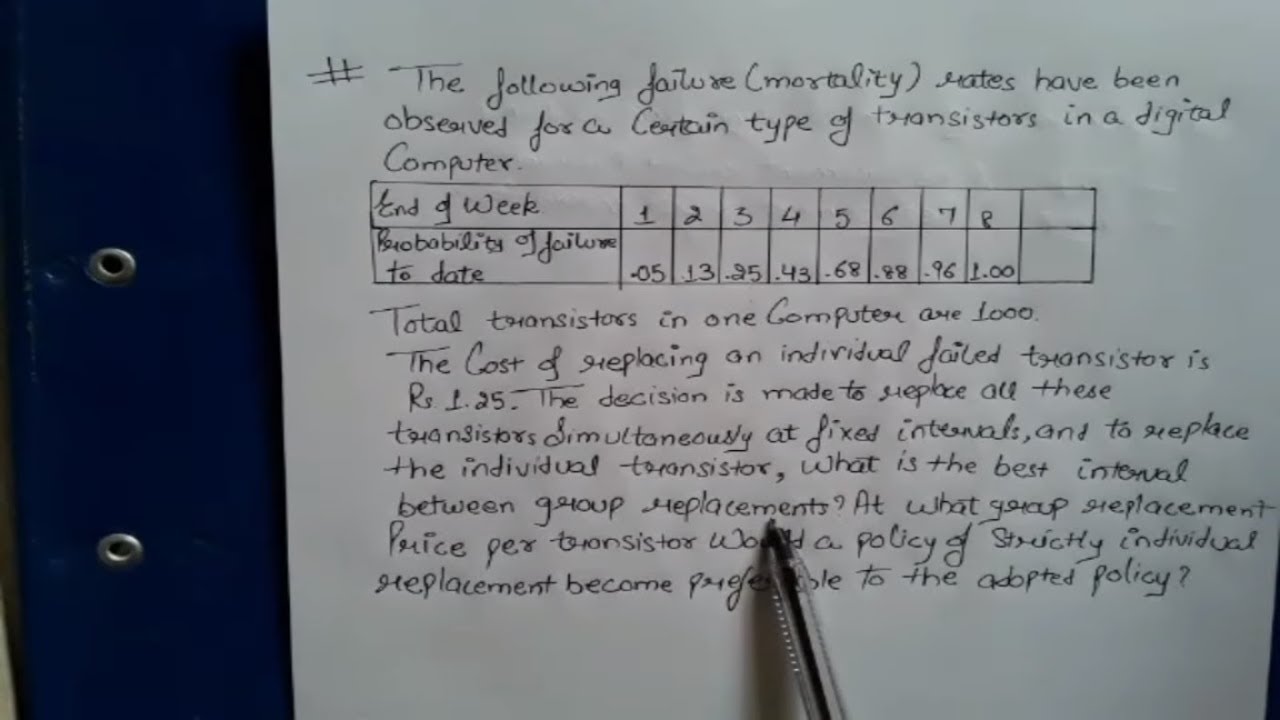 # The following failure (mortality) rates have been
observed for a Certain type of transistors in a digital
Computer.
End of Week 1 2 3 4 5 6 7 8
Probability of failure
to date .05 .13 .25 .43 .68 .88 .96 1.00
Total transistors in one Computer are 1000.
The Cost of replacing an individual failed transistor is
Rs. 1.25. The decision is made to replace all these
transistors Simultaneously at fixed intervals, and to replace
the individual transistor, What is the best interval
between group replacements? At what group replacement
Price per transistor Would a policy of Strictly individual
replacement become preferable to the adopted policy?